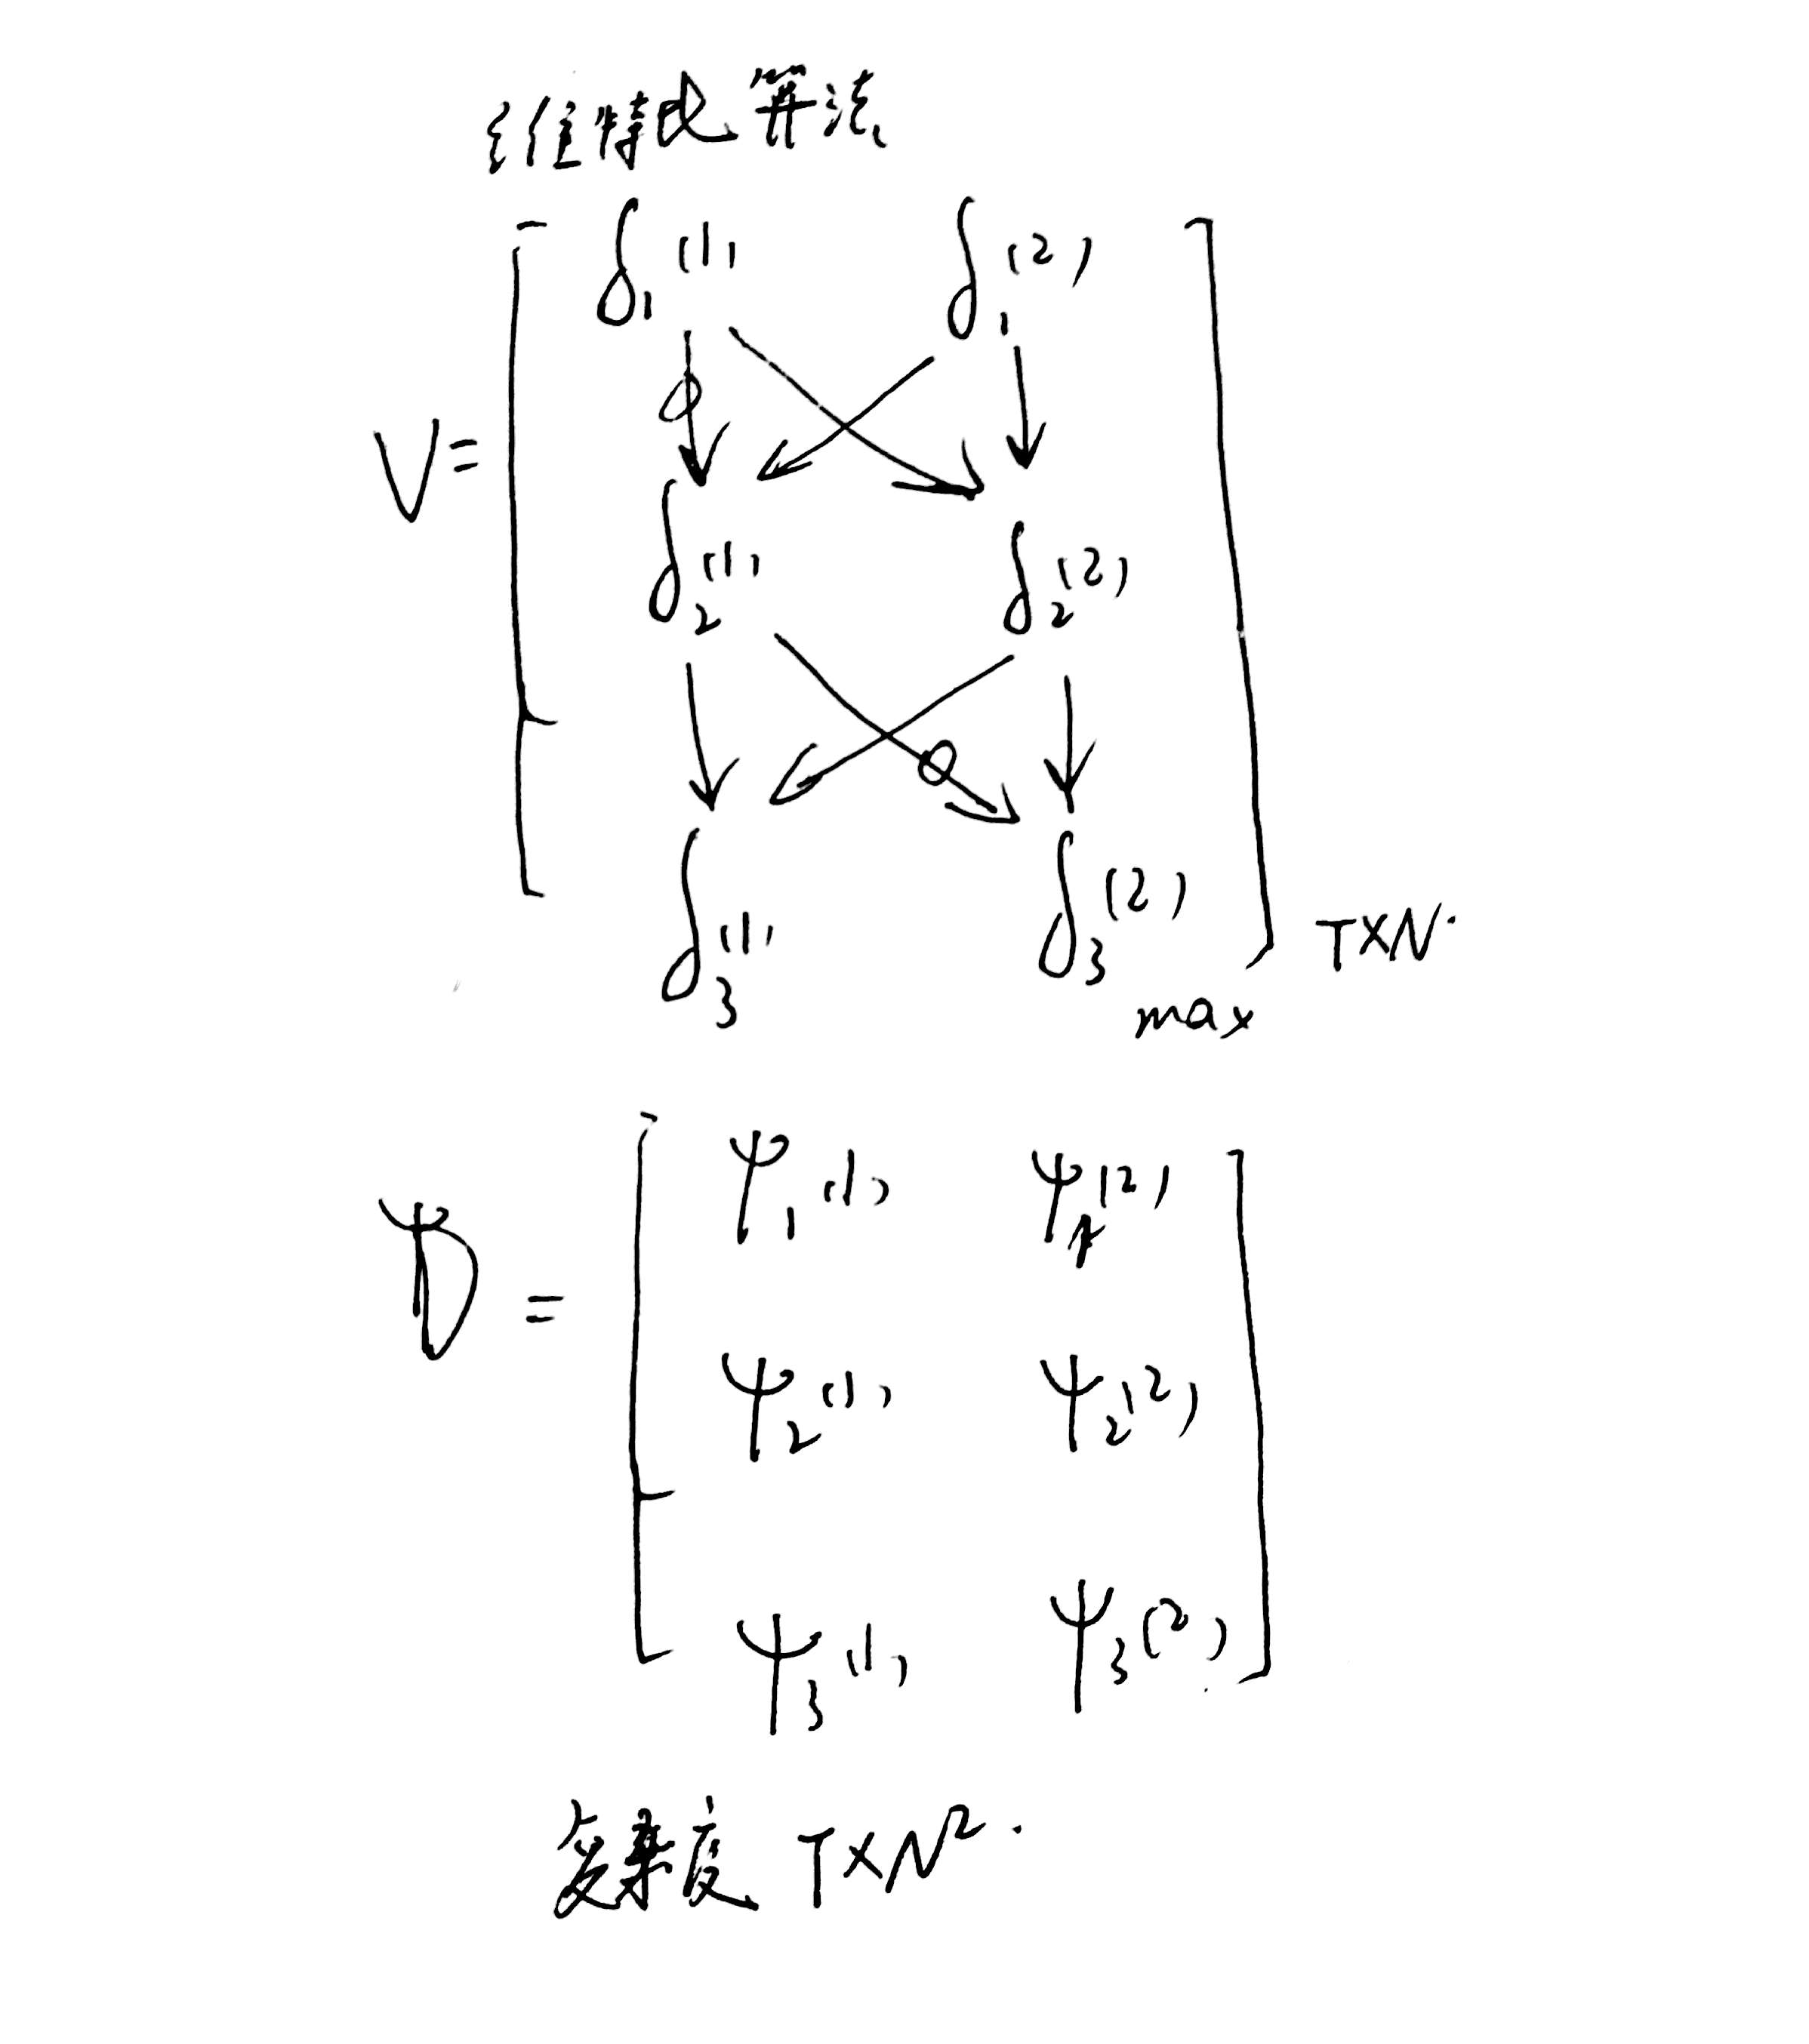 维特比算法
δ₁(1) δ₁(2)
V=
δ₂(1) δ₂(2)
δ₃(1) δ₃(2)
T×N.
max
ψ₁(1) ψ₁(2)
D =
ψ₂(1) ψ₂(2)
ψ₃(1) ψ₃(2)
复杂度 T×N².